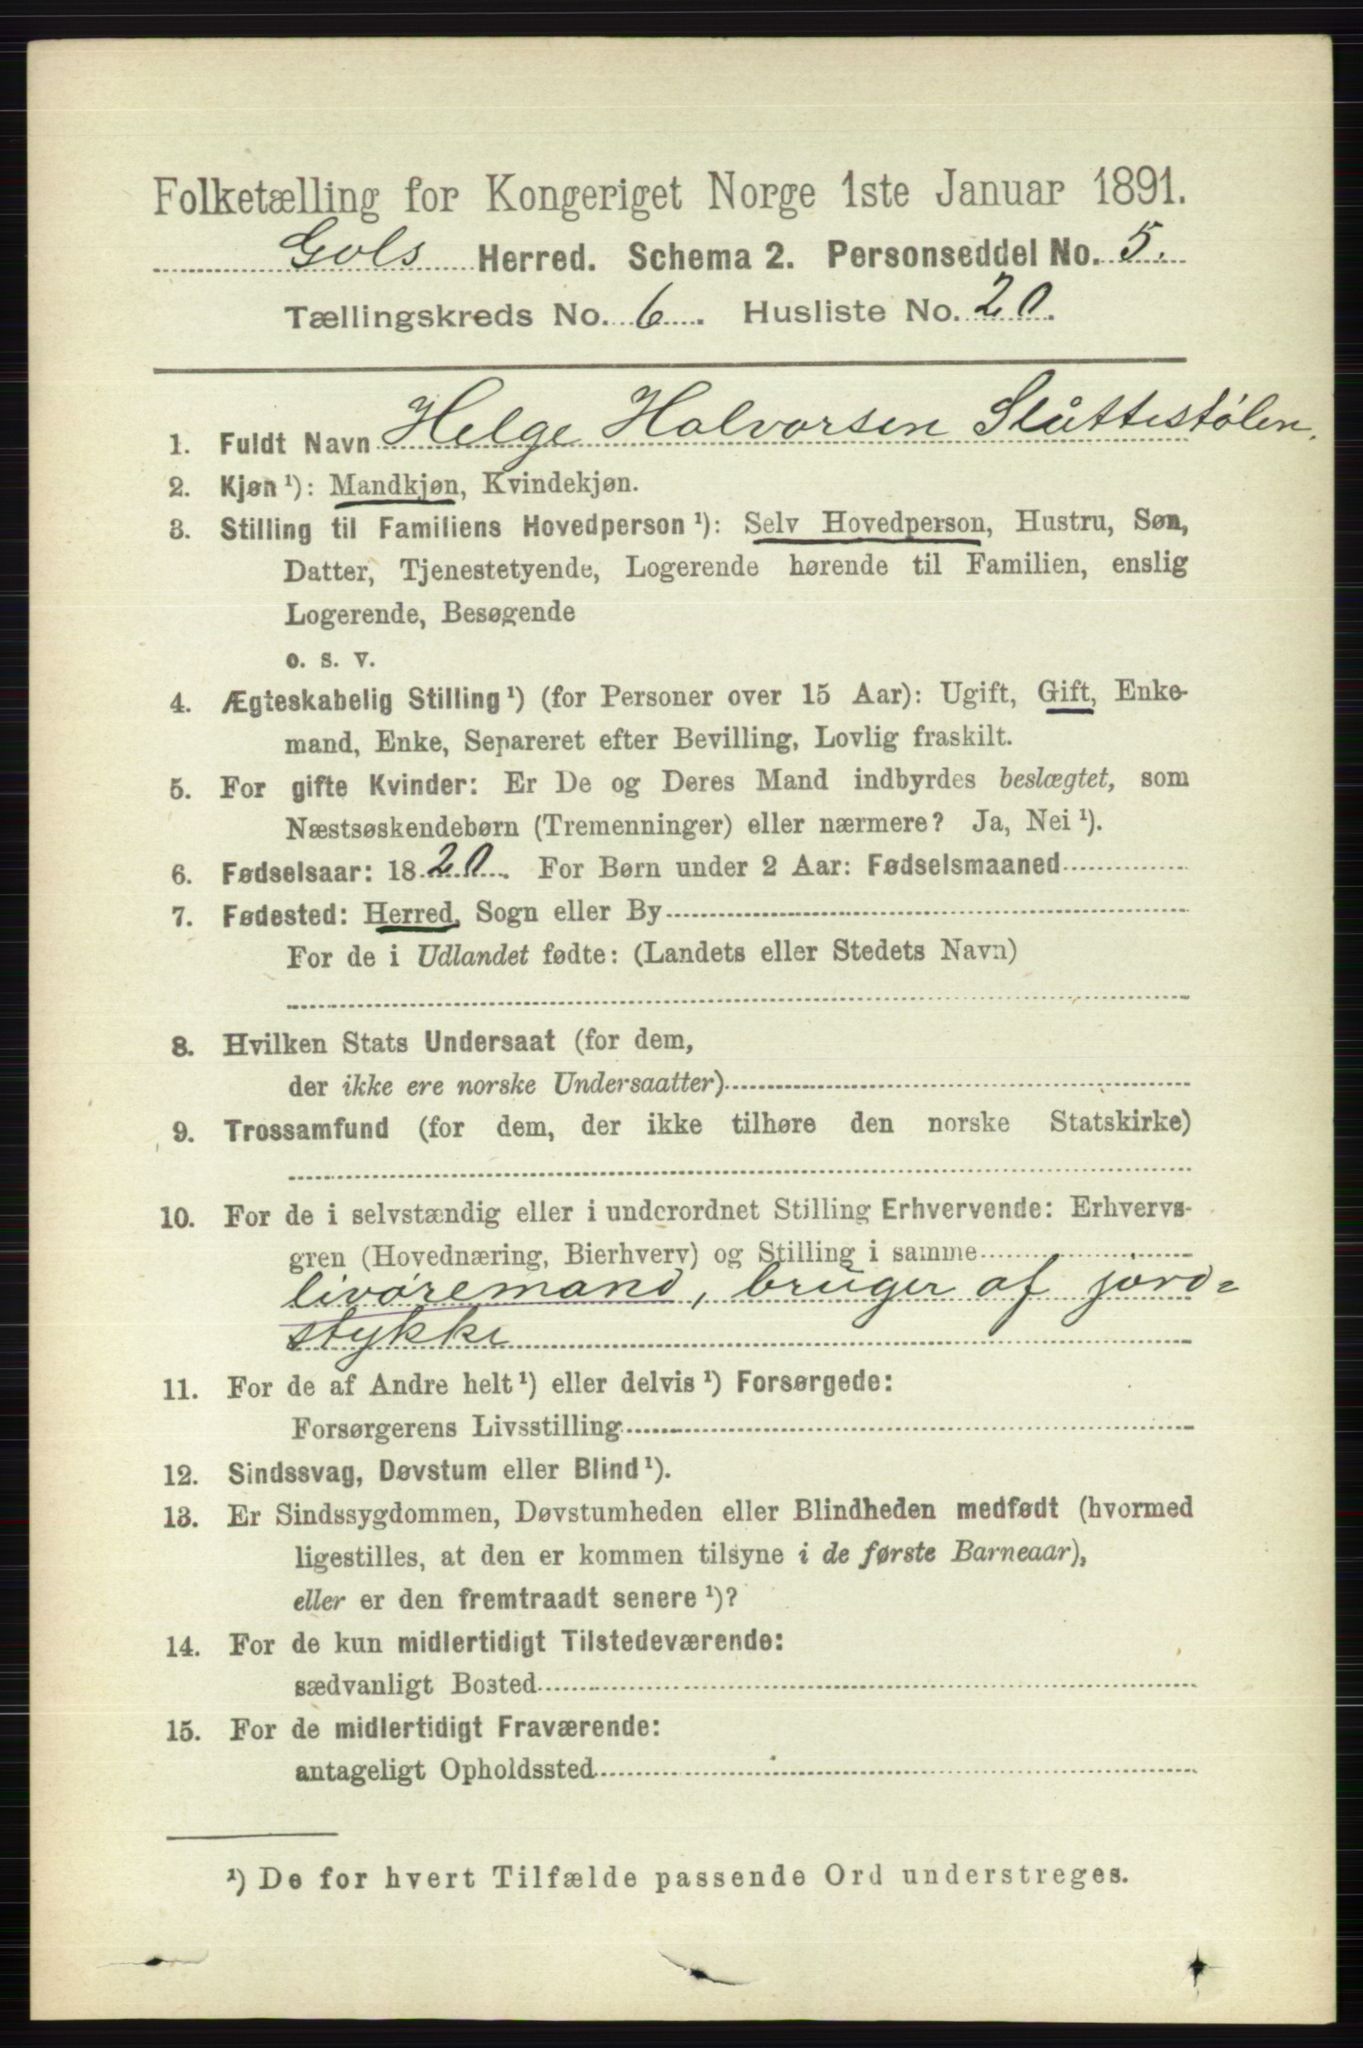 Folketælling for Kongeriget Norge 1ste Januar 1891.
Gols Herred. Schema 2. Personseddel No. 5.
Tællingskreds No. 6. Husliste No. 20.
1. Fuldt Navn Helge Halvorsen Slåttestølen.
2. Kjøn ¹): Mandkjøn, Kvindekjøn.
3. Stilling til Familiens Hovedperson ¹): Selv Hovedperson, Hustru, Søn,
Datter, Tjenestetyende, Logerende hørende til Familien, enslig
Logerende, Besøgende
o. s. v.
4. Ægteskabelig Stilling ¹) (for Personer over 15 Aar): Ugift, Gift, Enke-
mand, Enke, Separeret efter Bevilling, Lovlig fraskilt.
5. For gifte Kvinder: Er De og Deres Mand indbyrdes beslægtet, som
Næstsøskendebørn (Tremenninger) eller nærmere? Ja, Nei ¹).
6. Fødselsaar: 1820. For Børn under 2 Aar: Fødselsmaaned
7. Fødested: Herred, Sogn eller By
For de i Udlandet fødte: (Landets eller Stedets Navn)
8. Hvilken Stats Undersaat (for dem,
der ikke ere norske Undersaatter)
9. Trossamfund (for dem, der ikke tilhøre den norske Statskirke)
10. For de i selvstændig eller i underordnet Stilling Erhvervende: Erhvervs-
gren (Hovednæring, Bierhverv) og Stilling i samme
livøremand, bruger af jord=
stykke
11. For de af Andre helt ¹) eller delvis ¹) Forsørgede:
Forsørgerens Livsstilling
12. Sindssvag, Døvstum eller Blind ¹).
13. Er Sindssygdommen, Døvstumheden eller Blindheden medfødt (hvormed
ligestilles, at den er kommen tilsyne i de første Barneaar),
eller er den fremtraadt senere ¹)?
14. For de kun midlertidigt Tilstedeværende:
sædvanligt Bosted
15. For de midlertidigt Fraværende:
antageligt Opholdssted
¹) De for hvert Tilfælde passende Ord understreges.